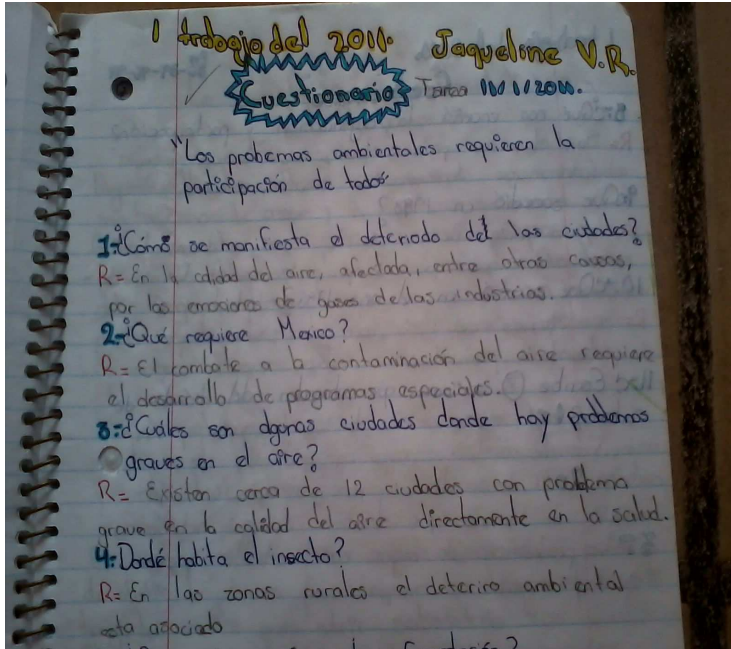 1 trabajo del 2011. Jaqueline V.R.
Cuestionario Tarea 10/1/2011.
"Los probemas ambientales requieren la
participación de todos"
1-¿Cómo se manifiesta el deteriodo del las ciudades?
R= En la calidad del aire, afectada, entre otras causas,
por las emosiones de gases de las industrias.
2-¿Qué requiere Mexico?
R= El combate a la contaminación del aire requiere
el desarrollo de programas especiales.
3-¿Cuáles son algunas ciudades donde hay problemas
graves en el aire?
R= Existen cerca de 12 ciudades con problema
grave en la calidad del aire directamente en la salud.
4-Dondé habita el insecto?
R= En las zonas rurales el deteriro ambiental
esta asociado